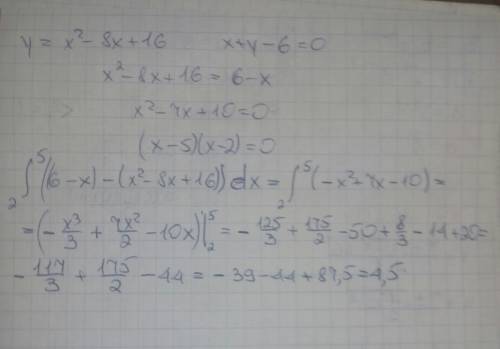 y = x² - 8x + 16   x + y - 6 = 0
x² - 8x + 16 = 6 - x
x² - 7x + 10 = 0
(x - 5)(x - 2) = 0
₂∫⁵ ((6 - x) - (x² - 8x + 16)) dx = ₂∫⁵ (-x² + 7x - 10) =
= (-x³/3 + 7x²/2 - 10x)|₂⁵ = -125/3 + 175/2 - 50 + 8/3 - 14 + 20 =
-117/3 + 175/2 - 44 = -39 - 44 + 87,5 = 4,5